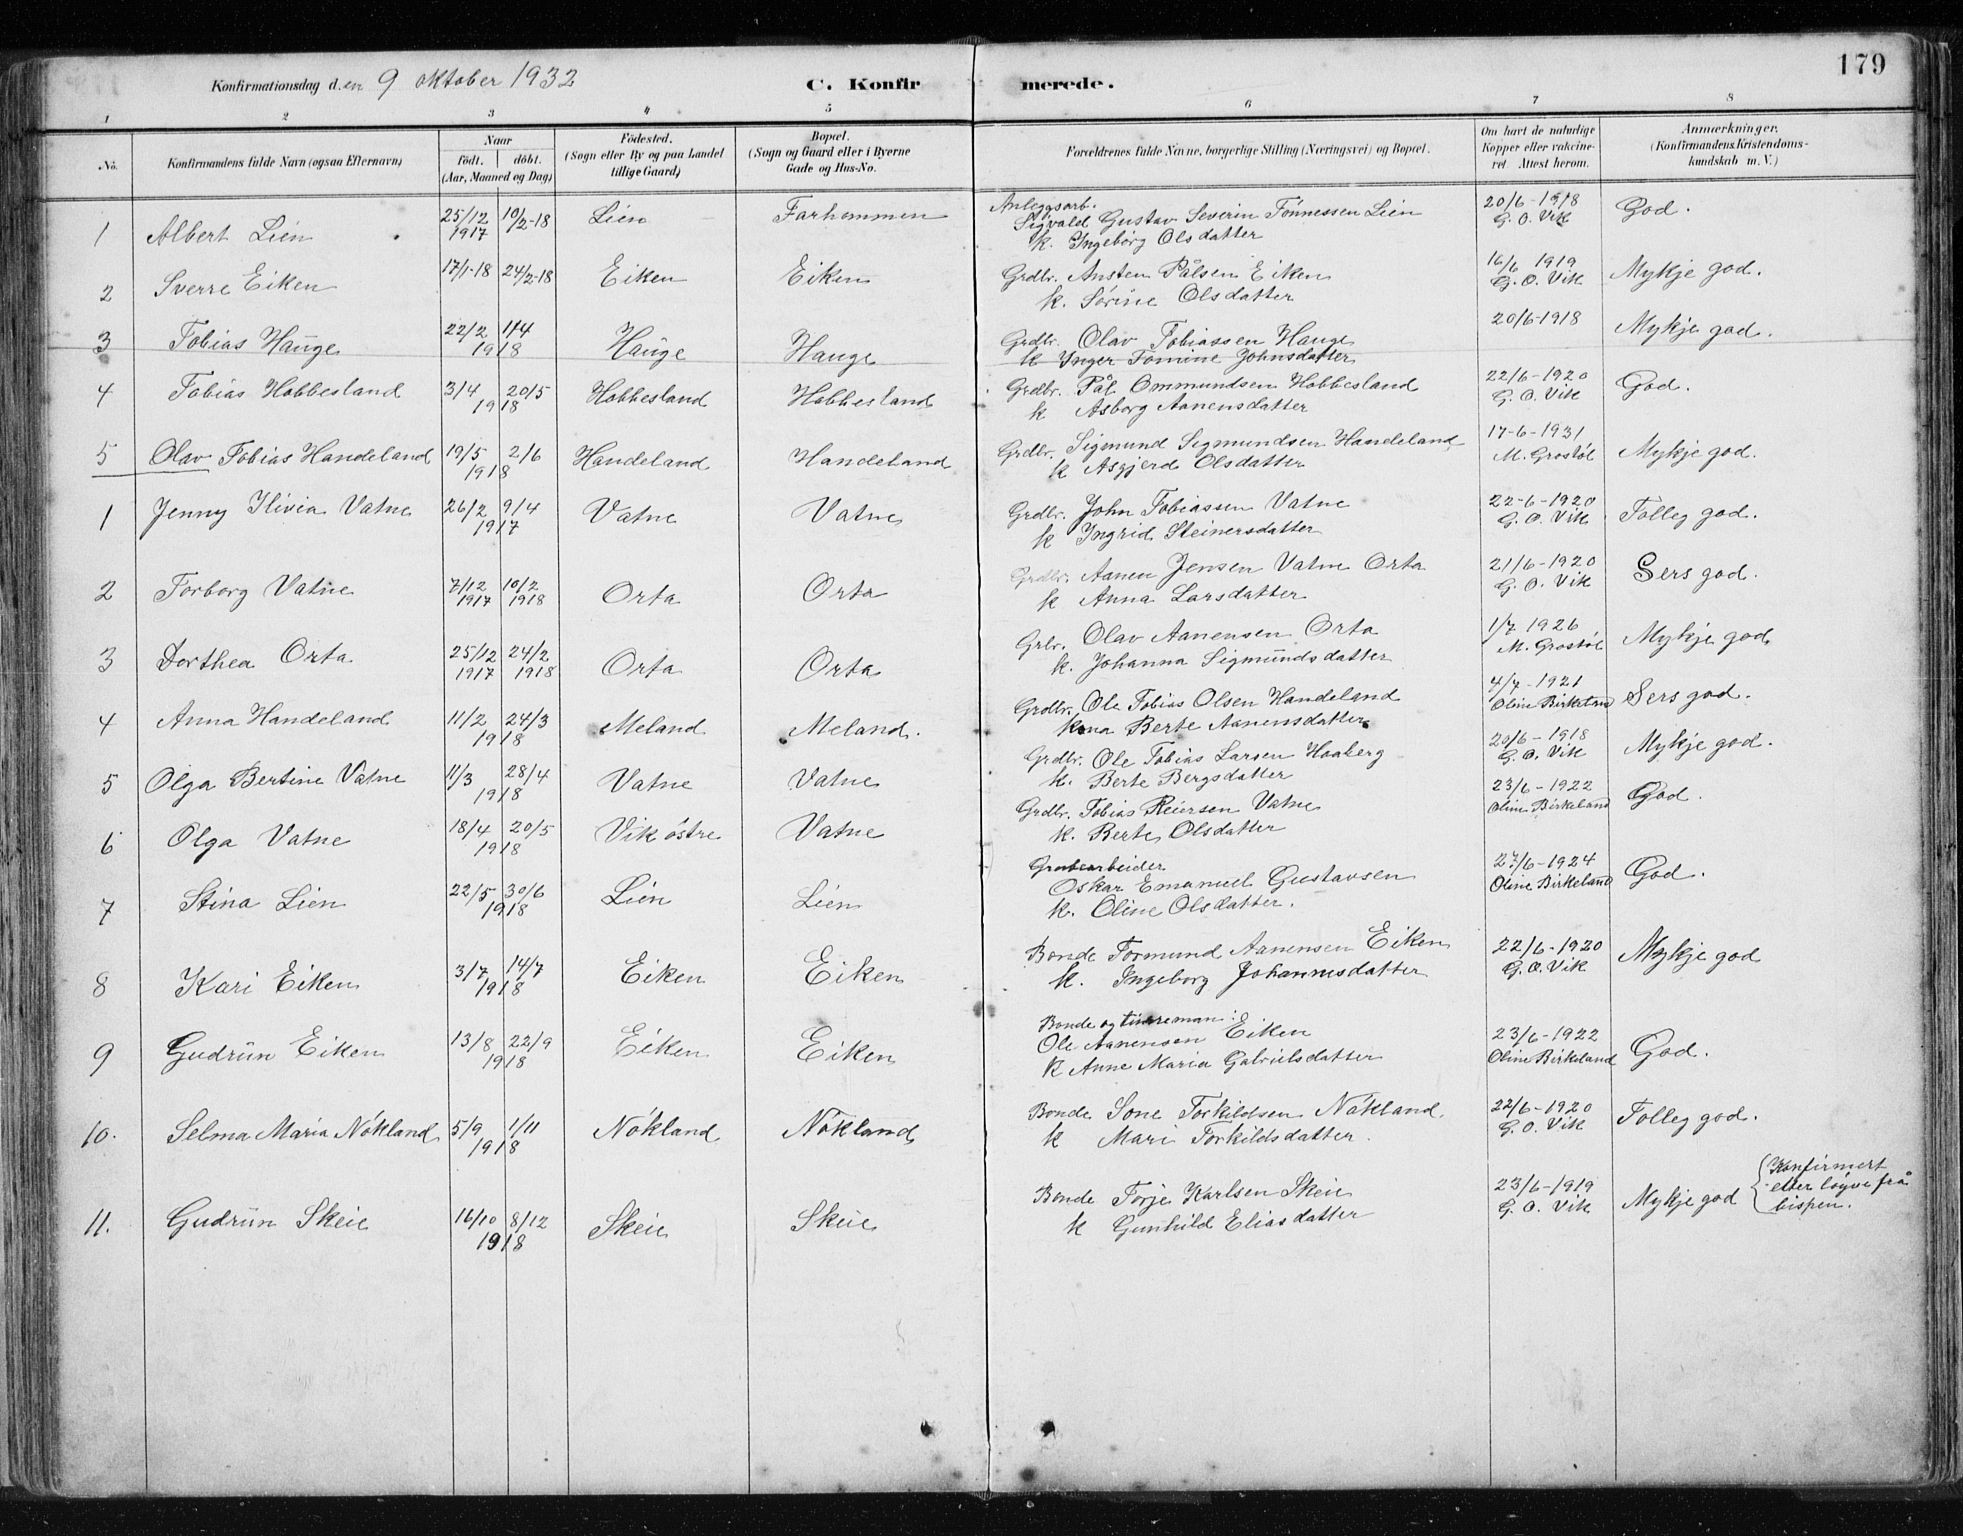 179
Konfirmationsdag den 9 oktober 1932 C. Konfirmerede.
1 2 3 4 5 6 7 8
No. Konfirmandens fulde Navn (ogsaa Efternavn) Naar født. døbt. (Aar, Maaned og Dag) Födested. (Sogn eller By og paa Landet tillige Gaard) Bopæl. (Sogn og Gaard eller i Byerne Gade og Hus-No. Forældrenes fulde Navne, borgerlige Stilling (Næringsvei) og Bopæl. Om havt de naturlige Kopper eller vakcineret. Attest herom. Anmærkninger. (Konfirmandens Kristendomskundskab m. V.)
1 Albert Lien 25/12 1917 10/2-18 Lien Farhommen Anleggsarb. Sigvald Gustav Severin Tönnessen Lien k. Ingeborg Olsdatter 20/6-1918 G. O. Vik God.
2 Sverre Eiken 17/1-18 24/2-18 Eiken Eiken Grdbr. Ansten Pålsen Eiken k. Sörine Olsdatter 16/6 1919 G. O. Vik Mykje god.
3 Tobias Hauge 22/2 1/4 1918 Hauge Hauge Grdbr. Olav Tobiassen Hauge k Inger Tomine Johnsdatter 20/6-1918 Mykje god.
4 Tobias Hobbesland 3/4 20/5 1918 Hobbesland Hobbesland Grdbr. Pål Ommundsen Hobbesland k Asborg Aanensdatter 22/6-1920 G. O. Vik God.
5 Olav Tobias Handeland 19/5 2/6 1918 Handeland Handeland Grdbr. Sigmund Sigmundsen Handeland k Asgjerd Olsdatter 17-6-1931 M. Grostöl Mykje god.
1 Jenny Ilivia Vatne 26/2 9/4 1917 Vatne Vatne Grdbr. John Tobiassen Vatne k Ingrid Steinersdatter 22-6-1920 G. O. Vik Tolleg god.
2 Torborg Vatne 7/12 1917 10/2 1918 Orta Orta Grdbr. Aanen Jensen Vatne Orta k Anna Larsdatter 21/6-1920 G. O. Vik Sers god.
3 Dorthea Orta 25/12 1917 24/2 1918 Orta Orta Grbr. Olav Aanensen Orta k. Johanna Sigmundsdatter 1/7 1926 M. Grostöl Mykje god
4 Anna Handeland 11/2 24/3 1918 Meland Meland. Grdbr. Ole Tobias Olsen Handeland kona Berte Aanensdatter 4/7-1921 Oline Birkeland Sers god.
5 Olga Bertine Vatne 11/3 28/4 1918 Vatne Vatne Grdbr. Ole Tobias Larsen Haaberg k. Berte Bergsdatter 20/6-1918 G. O. Vik Mykje god.
6 Olga Vatne 18/4 20/5 1918 Vik östre Vatne Grdbr. Tobias Reiersen Vatne k. Berte Olsdatter 23/6-1922 Oline Birkeland God.
7 Stina Lien 22/5 30/6 1918 Lien Lien Grubearbeider Oskar Emanuel Gustavsen k. Oline Olsdatter. 27/6-1924 Oline Birkeland God.
8 Kari Eiken 3/7 14/7 1918 Eiken Eiken Bonde Tormund Aanensen Eiken k. Ingeborg Johannesdatter 22/6-1920 G. O. Vik Mykje god
9 Gudrun Eiken 13/8 22/9 1918 Eiken Eiken Bonde og Ole Aanensen Eiken k Anne Maria Gabrielsdatter 23/6-1922 Oline Birkeland God.
10. Selma Maria Nökland 5/9 1/11 1918 Nökland Nökland Bonde Sone Torkildsen Nökland. k Mari Torkildsdatter. 22/6-1920 G. O. Vik Tolleg god.
11. Gudrun Skeie 16/10 8/12 1918 Skeie Skeie Bonde Torje Karlsen Skeie k Gunhild Eliasdatter 23/6-1919 G. O. Vik Mykje god { Konfirmert etter löyve frå bispen.